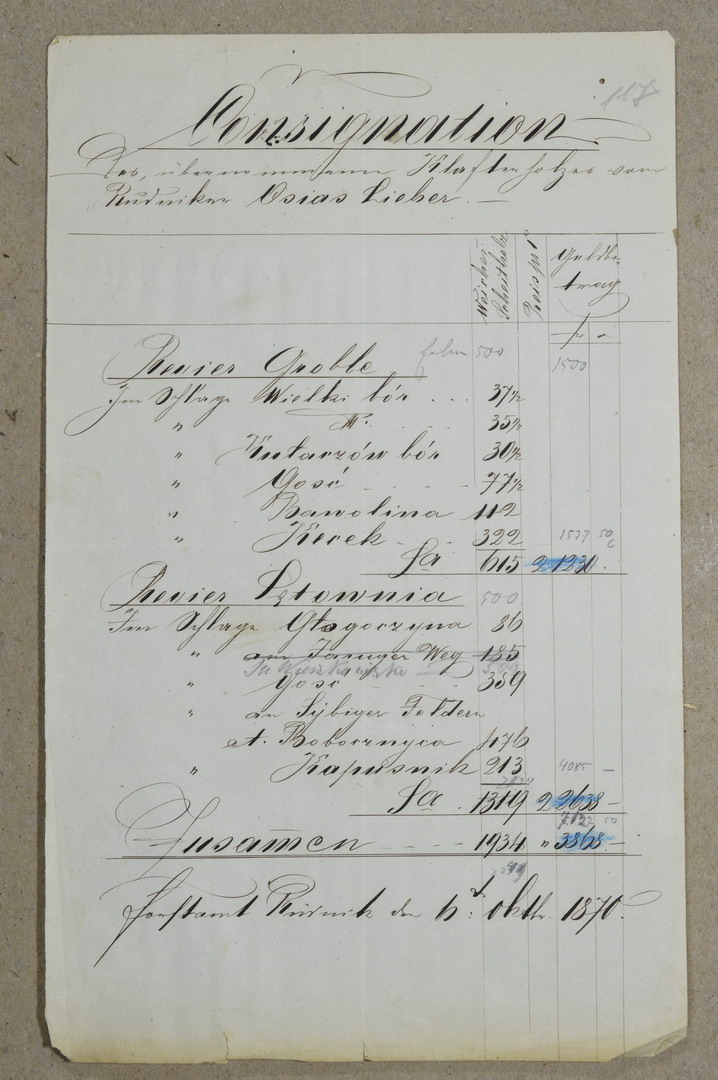 117
Consignation
Des, übernommenen Klafterholzes vom
Rudniker Osias Lieber.
Weiches Scheitholz
Preis pr 1°
Geldbetrag
f
Revier Groble 500
1500
Im Schlage Wielki bór ... 37 1/2
" 35 1/2
" Kułaczów bór 30 1/2
" Gość 77 1/2
" Banolina 112
" Kecek 322 1537 50
Sa 615 2 1230.
Revier Łętownia 500
Im Schlage Głogoczyna 86
" am Jaruger Weg 185
" Gość 359
" an Feldern
et. Bobocznyca 476
" Kapusnik 213 4085 —
Sa. 1319 2 2638 —
7122 50
Zusamen ---- 1934 " 3868 —
Forstamt Rudnik den 6t. oktbr. 1870.